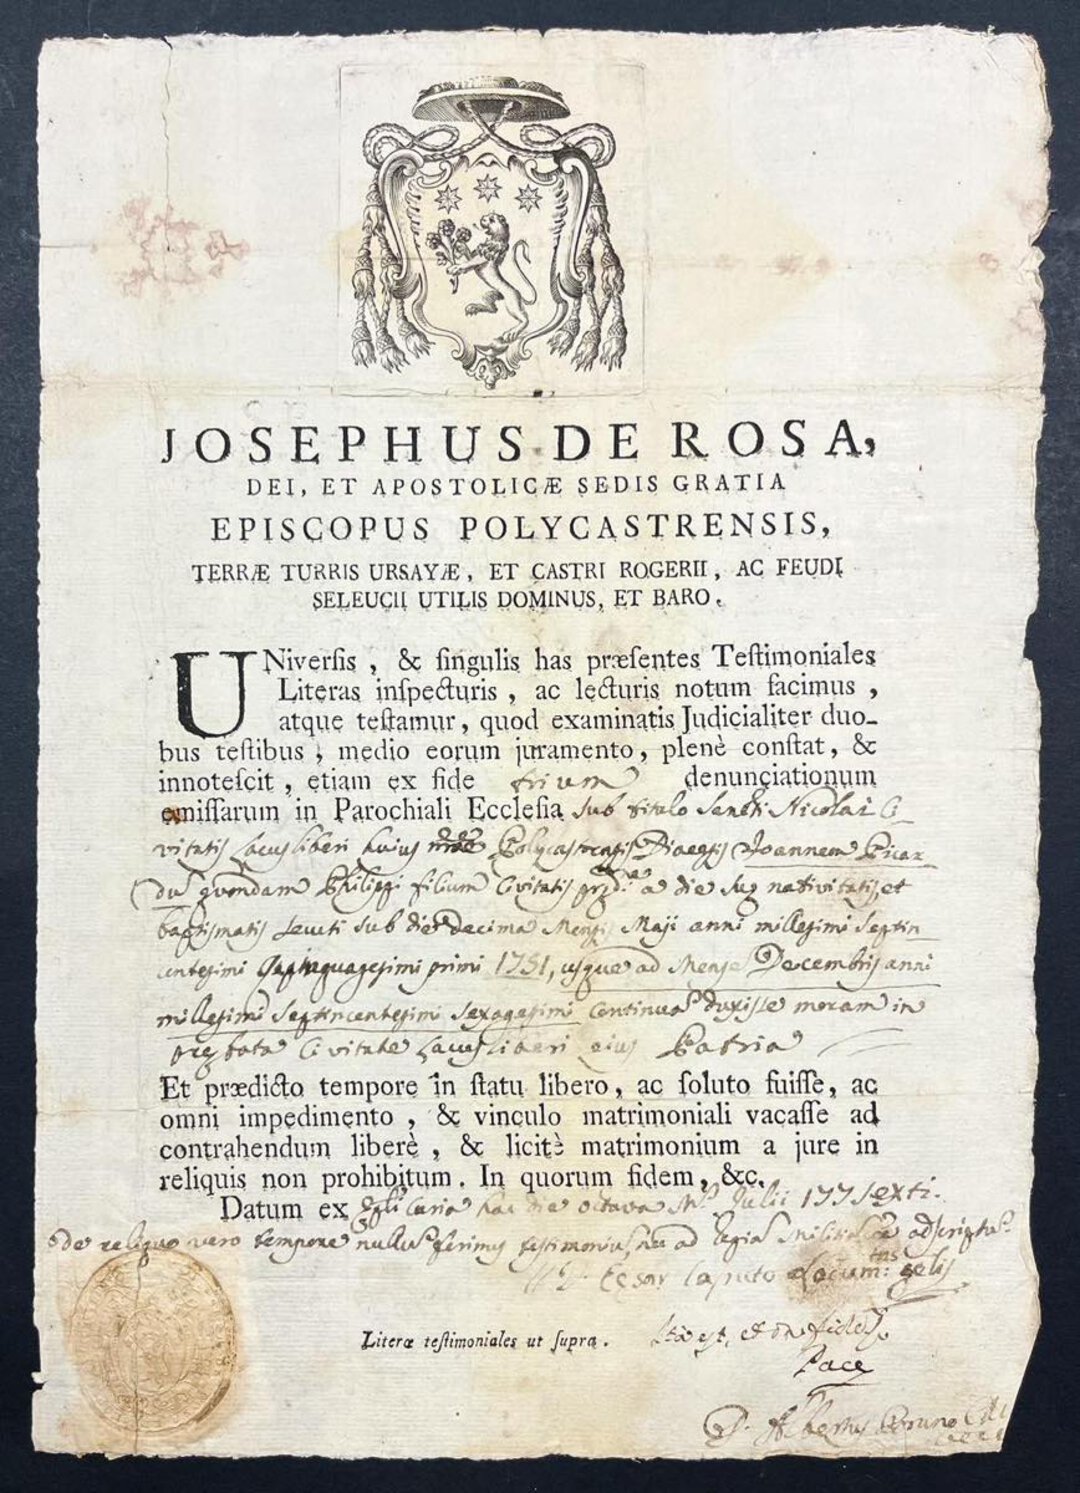 JOSEPHUS DE ROSA,
DEI, ET APOSTOLICÆ SEDIS GRATIA
EPISCOPUS POLYCASTRENSIS,
TERRÆ TURRIS URSAYÆ, ET CASTRI ROGERII, AC FEUDI
SELEUCII UTILIS DOMINUS, ET BARO.
UNiverſis, & ſingulis has præſentes Teſtimoniales
Literas inſpecturis, ac lecturis notum facimus,
atque teſtamur, quod examinatis Judicialiter duo-
bus teſtibus, medio eorum juramento, plenè conſtat, &
innoteſcit, etiam ex fide trium denunciationum
emiſſarum in Parochiali Eccleſia sub titulo Sancti Nicolai Ci-
vitatis Lacusliberi huius Polycastrensis Joannem Picar-
quondam Philippi filium Civitatis a die nativitatis, et
baptismatis sub die decima Mensis Maji anni millesimi Septin-
centesimi primi 1751, usque ad Mense Decembris anni
millesimi Septincentesimi Sexagesimi duxisse moram in
Civitate Lacusliberi eius Patria
Et prædicto tempore in ſtatu libero, ac ſoluto fuiſſe, ac
omni impedimento, & vinculo matrimoniali vacaſſe ad
contrahendum liberè, & licitè matrimonium a jure in
reliquis non prohibitum. In quorum fidem, &c.
Datum ex Curia hac die octava Julii 177sexti.
de reliquo vero tempore ad
Cesar Caputo
Literæ teſtimoniales ut ſupra. Ita est, et
Pace
D. Albertus Bruno